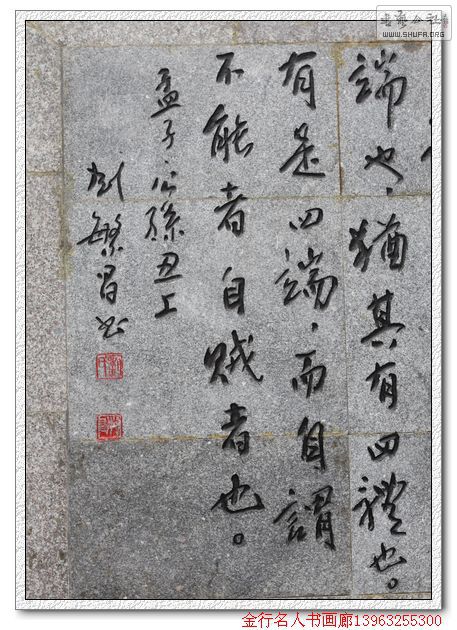 端也，猶其有四體也。
有是四端，而自謂
不能者自賊者也。
孟子·公孫丑上
劉繁昌书
书法公社
WWW.SHUFA.ORG
金行名人书画廊13963255300